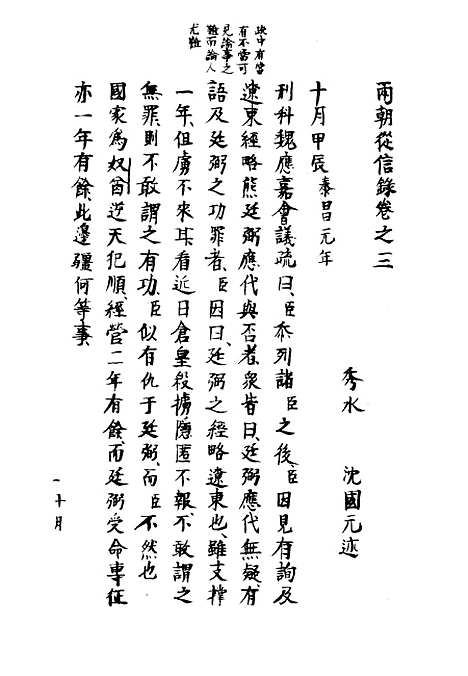 兩朝從信錄卷之三
秀水 沈國元述
十月甲辰泰昌元年
刑科魏應嘉會議疏曰、臣忝列諸臣之後、臣因見有詢及
遼東經略熊廷弼應代與否者、衆皆曰、廷弼應代無疑、有
語及廷弼之功罪者、臣因曰、廷弼之經略遼東也、雖支撑
一年、但虜不來耳、看近日倉皇殺擄隱匿不報、不敢謂之
無罪、則不敢謂之有功、臣似有仇于廷弼、而臣不然也
國家爲奴酋逆天犯順、經營二年有餘、而廷弼受命專征
亦一年有餘、此邊疆何等事
疏中有當
有不當可
見論事之
難而論人
尤難
一十月